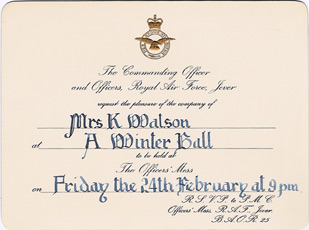 The Commanding Officer
and Officers, Royal Air Force, Jever
request the pleasure of the company of
Mrs K Watson
at A Winter Ball
to be held at
The Officers' Mess
on Friday the 24th February at 9 pm
R.S.V.P. to P.M.C.
Officers' Mess, R.A.F. Jever
B.A.O.R. 25